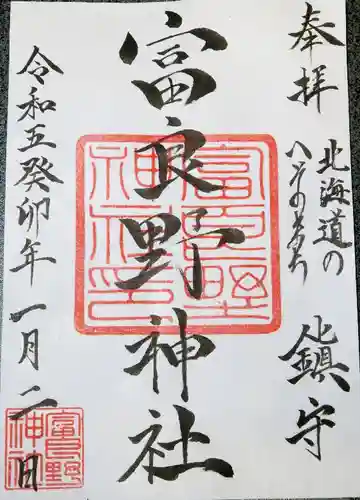 奉拝
北海道の
へそのまち
鎮守
富良野神社
令和五癸卯年
一月二日
富良野
神社印
富良野
神社